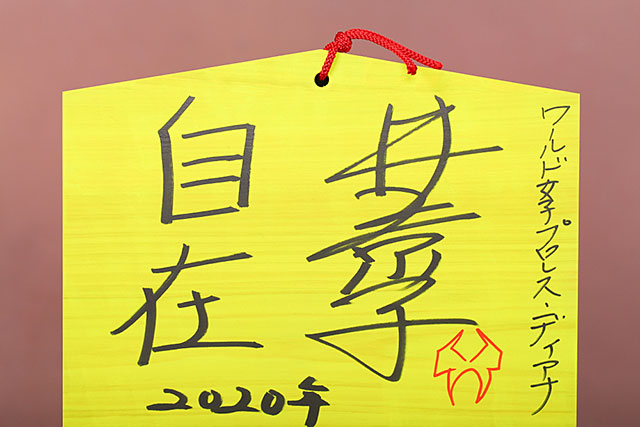 ワールド女子プロレス・ディアナ
井上京子
自在
2020年